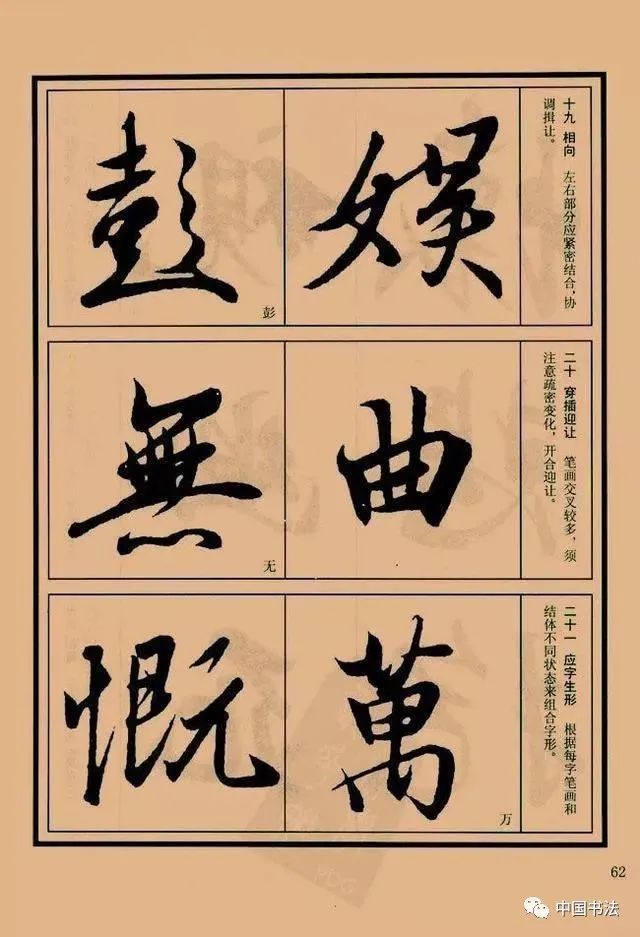 十九 相向 左右部分应紧密结合，协
调揖让。
娱
彭
彭
二十 穿插迎让 笔画交叉较多，须
注意疏密变化，开合迎让。
曲
無
无
二十一 应字生形 根据每字笔画和
结体不同状态来组合字形。
萬
万
慨
62
中国书法